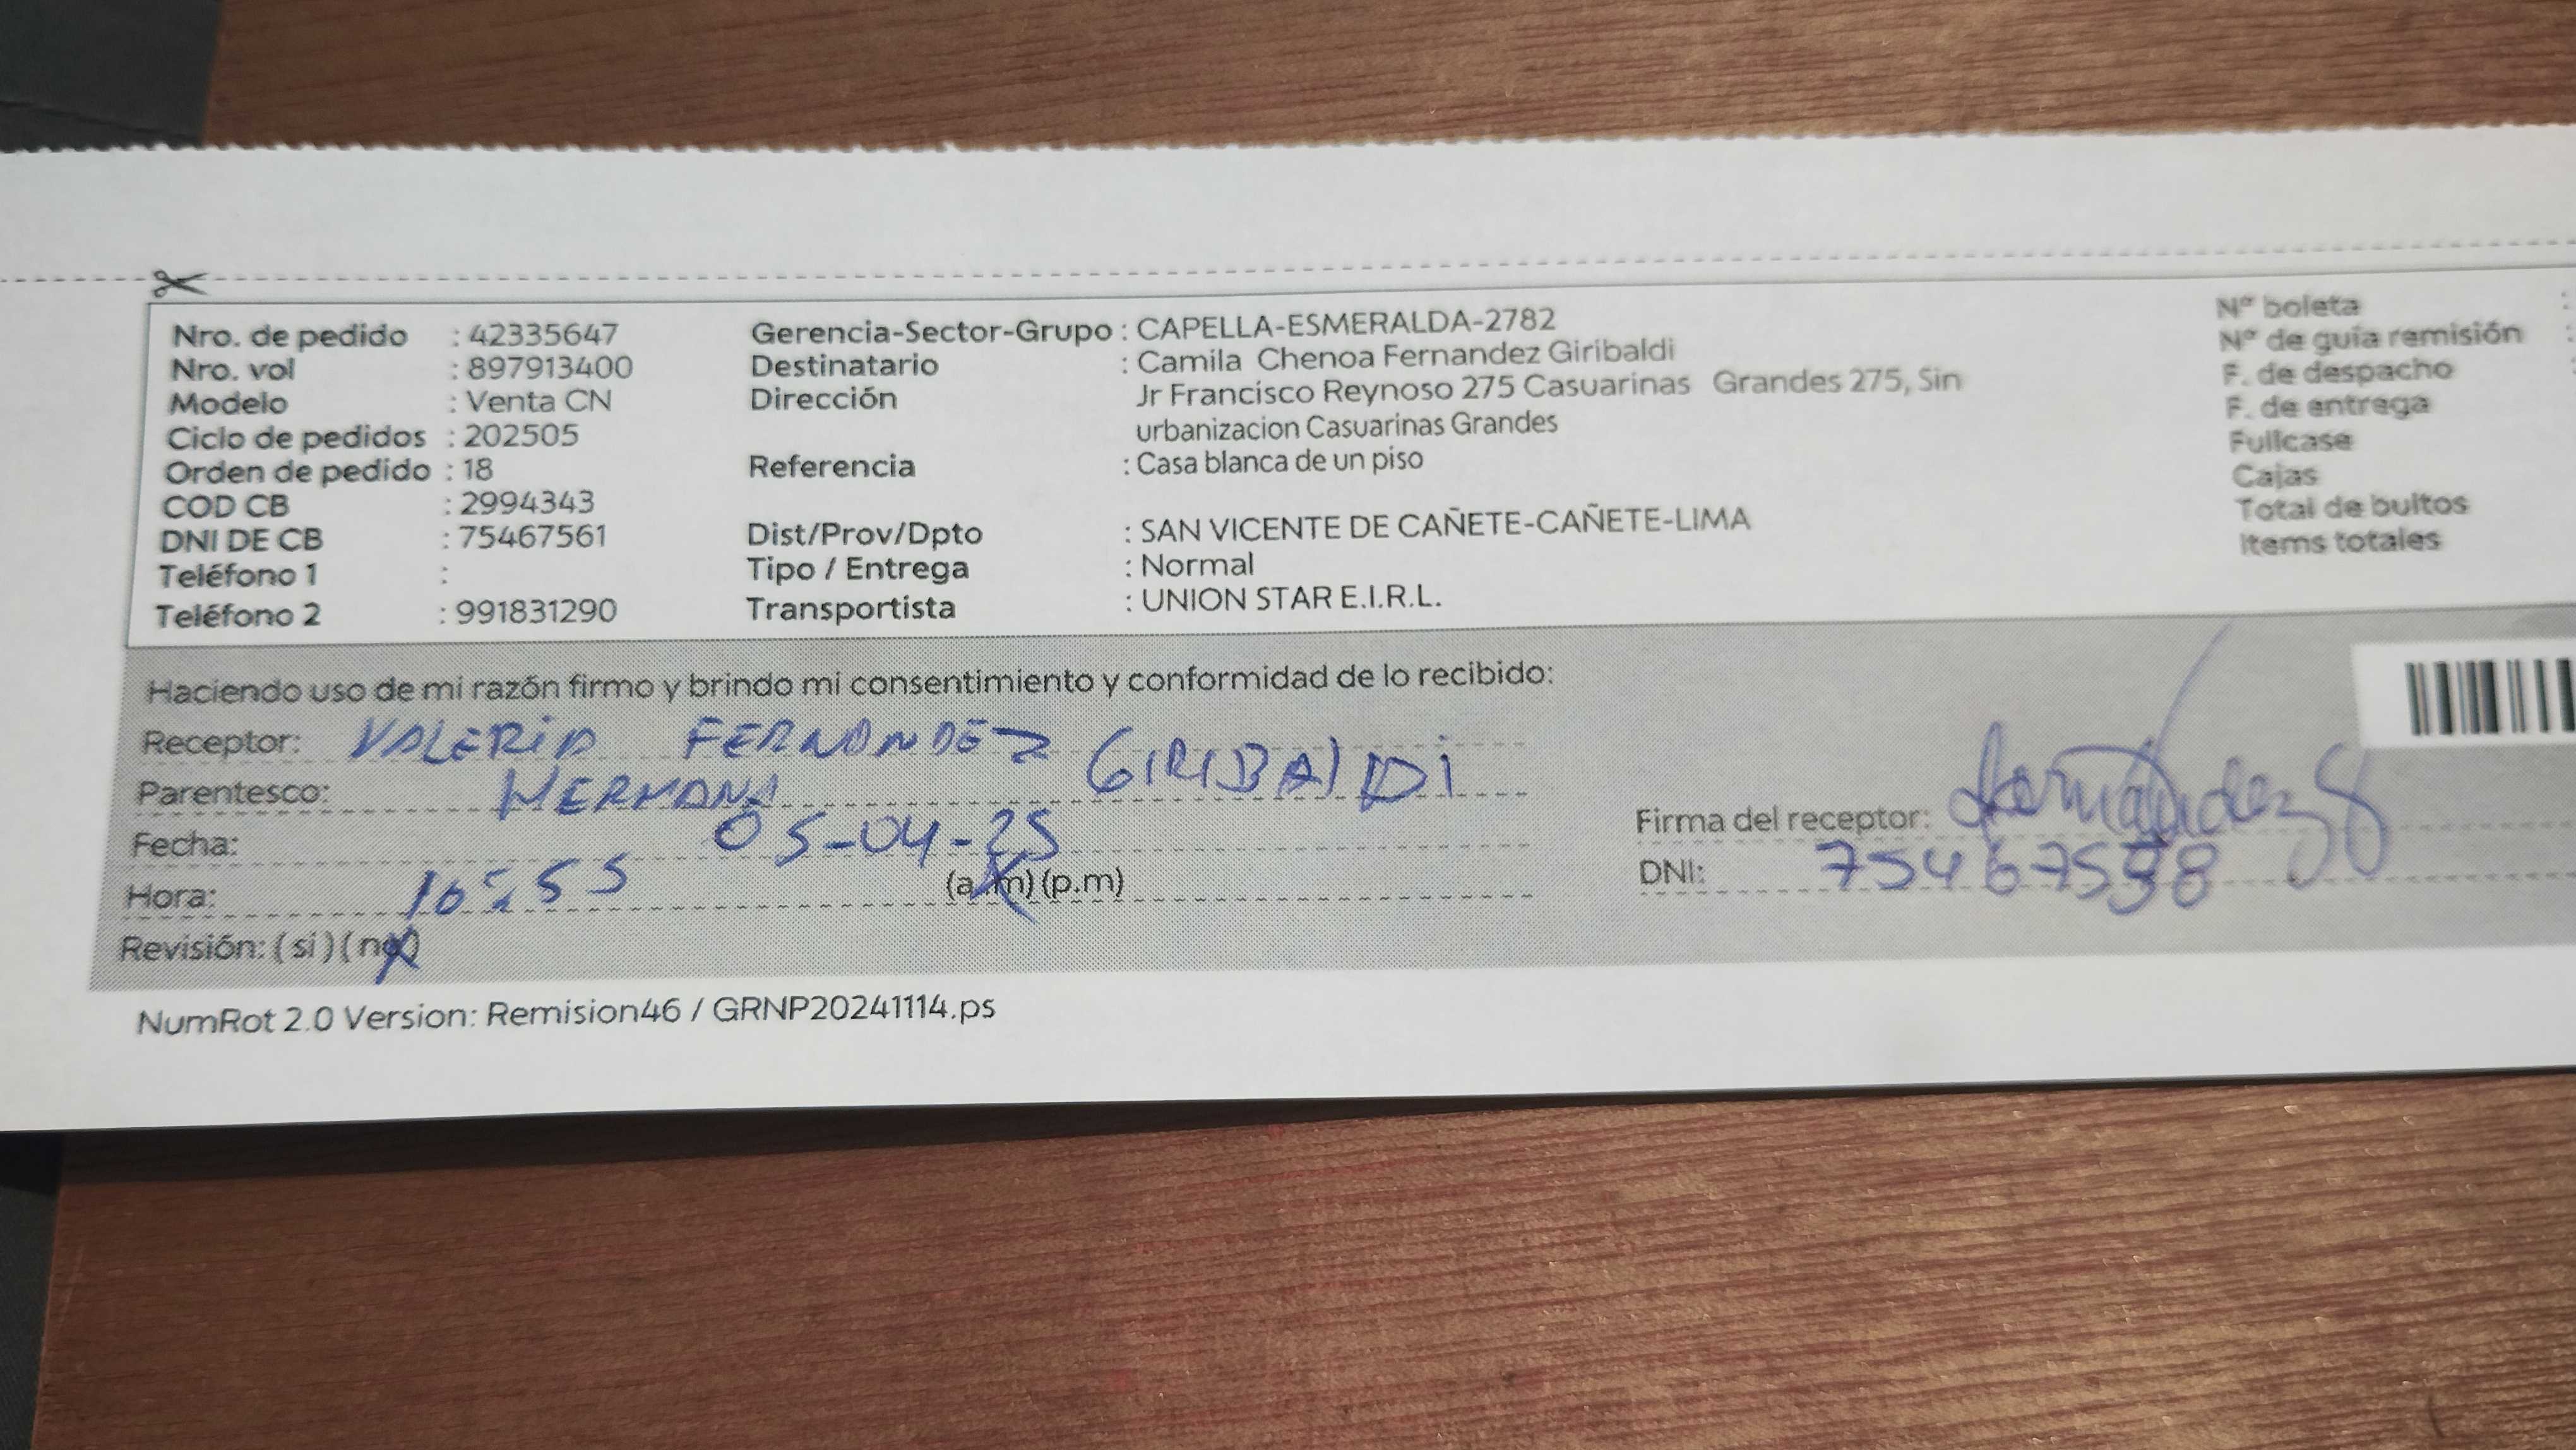 Nro. de pedido : 42335647
Nro. vol : 897913400
Modelo : Venta CN
Ciclo de pedidos : 202505
Orden de pedido : 18
COD CB : 2994343
DNI DE CB : 75467561
Teléfono 1 :
Teléfono 2 : 991831290
Gerencia-Sector-Grupo : CAPELLA-ESMERALDA-2782
Destinatario : Camila Chenoa Fernandez Giribaldi
Dirección Jr Francisco Reynoso 275 Casuarinas Grandes 275, Sin
urbanizacion Casuarinas Grandes
Referencia : Casa blanca de un piso
Dist/Prov/Dpto : SAN VICENTE DE CAÑETE-CAÑETE-LIMA
Tipo / Entrega : Normal
Transportista : UNION STAR E.I.R.L.
N° boleta :
N° de guía remisión :
F. de despacho :
F. de entrega
Fullcase
Cajas
Total de bultos
Items totales
Haciendo uso de mi razón firmo y brindo mi consentimiento y conformidad de lo recibido:
Receptor: VALERIA FERNANDEZ GIRIBALDI
Parentesco: HERMANA
Fecha: 05-04-25
Hora: 10:55 (a.m) (p.m)
Revisión: (si) (no)
Firma del receptor: Fernández G
DNI:
NumRot 2.0 Version: Remision46 / GRNP20241114.ps